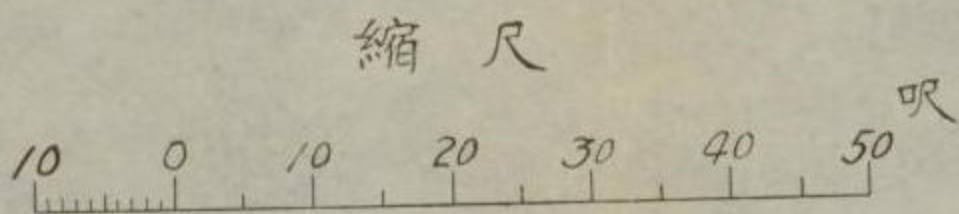 縮尺
呎
10 0 10 20 30 40 50